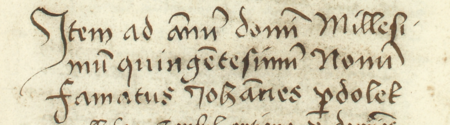 Item ad annū domī Millesi-
mū quingētesimū Nonū
Famatus Johānes pdolek